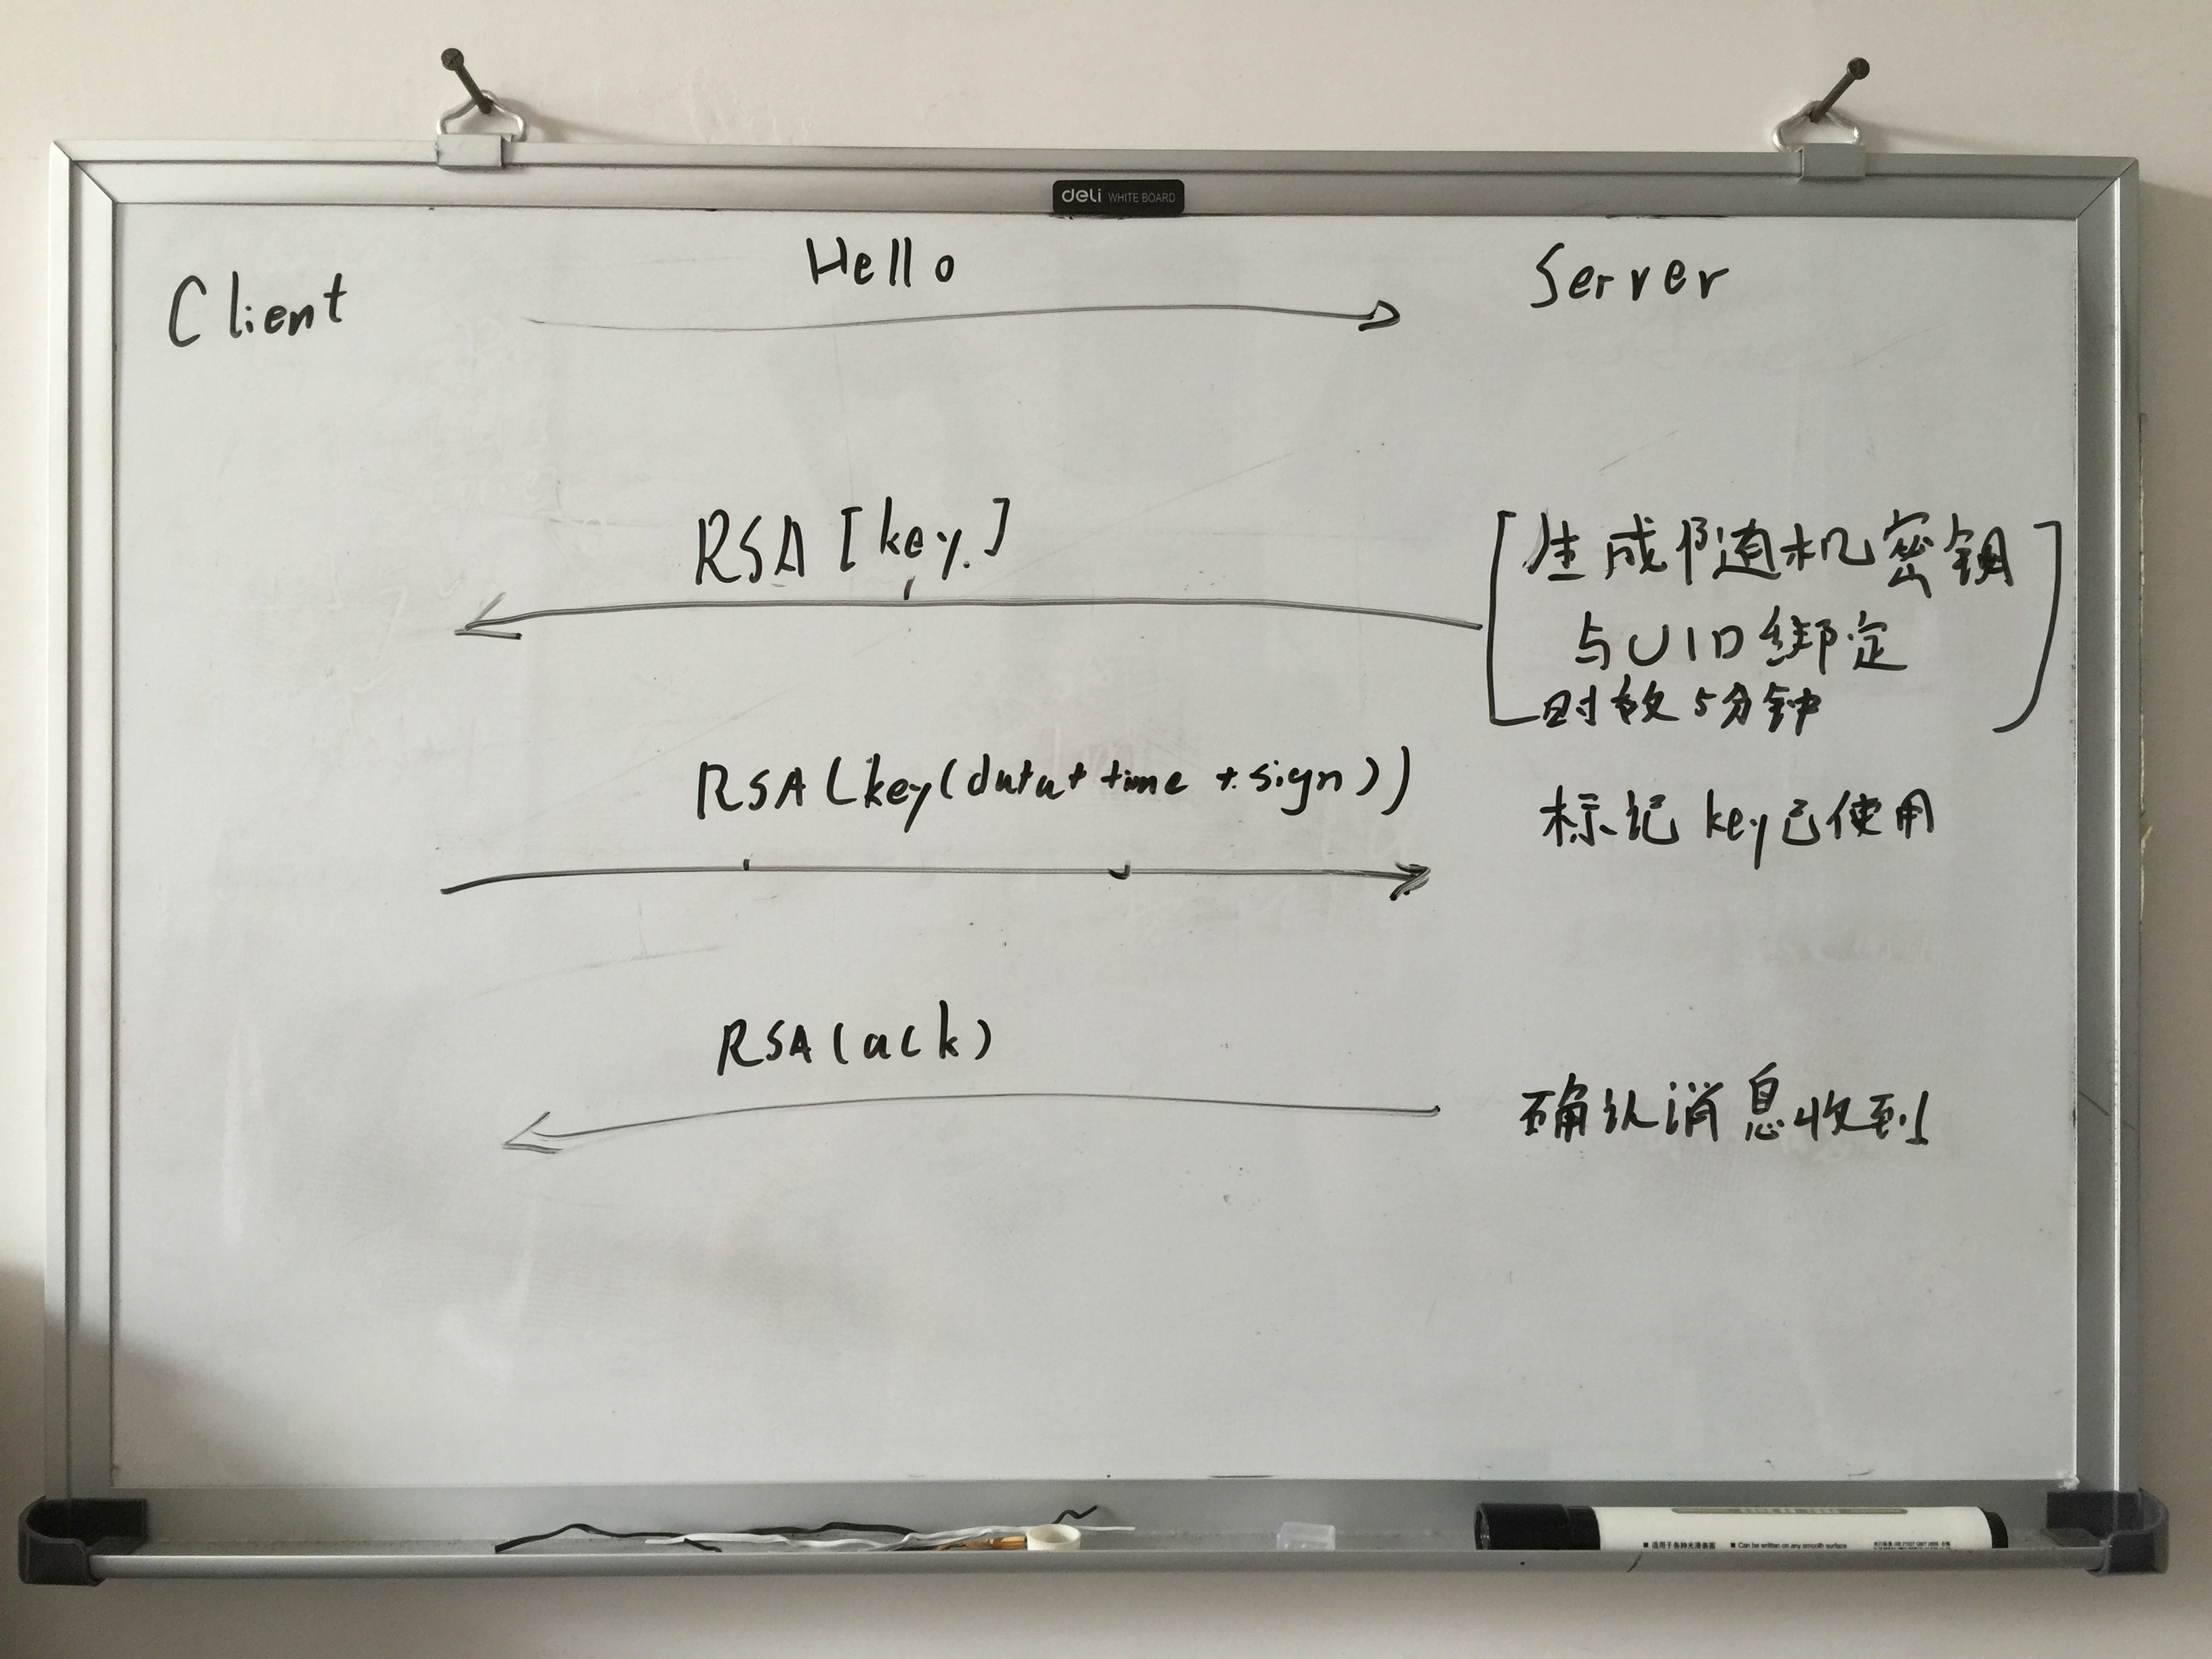 deli WHITE BOARD
Hello
Client
Server
RSA [key]
生成随机密钥
与UID绑定
时效5分钟
RSA (key(data + time + sign))
标记 key已使用
RSA (ack)
确认消息收到
■ 适用于各种光滑表面 ■ Can be written on any smooth surface